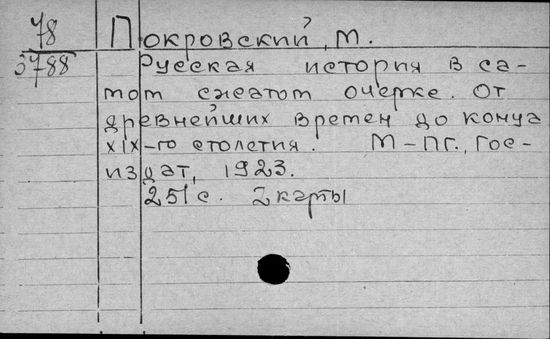 78
3788
Покровский, М.
Русская история в са-
мом сжатом очерке. От
древнейших времен до конца
XIX-го столетия. М-Пг., Гос-
издат, 1923.
251 с. 2 карты